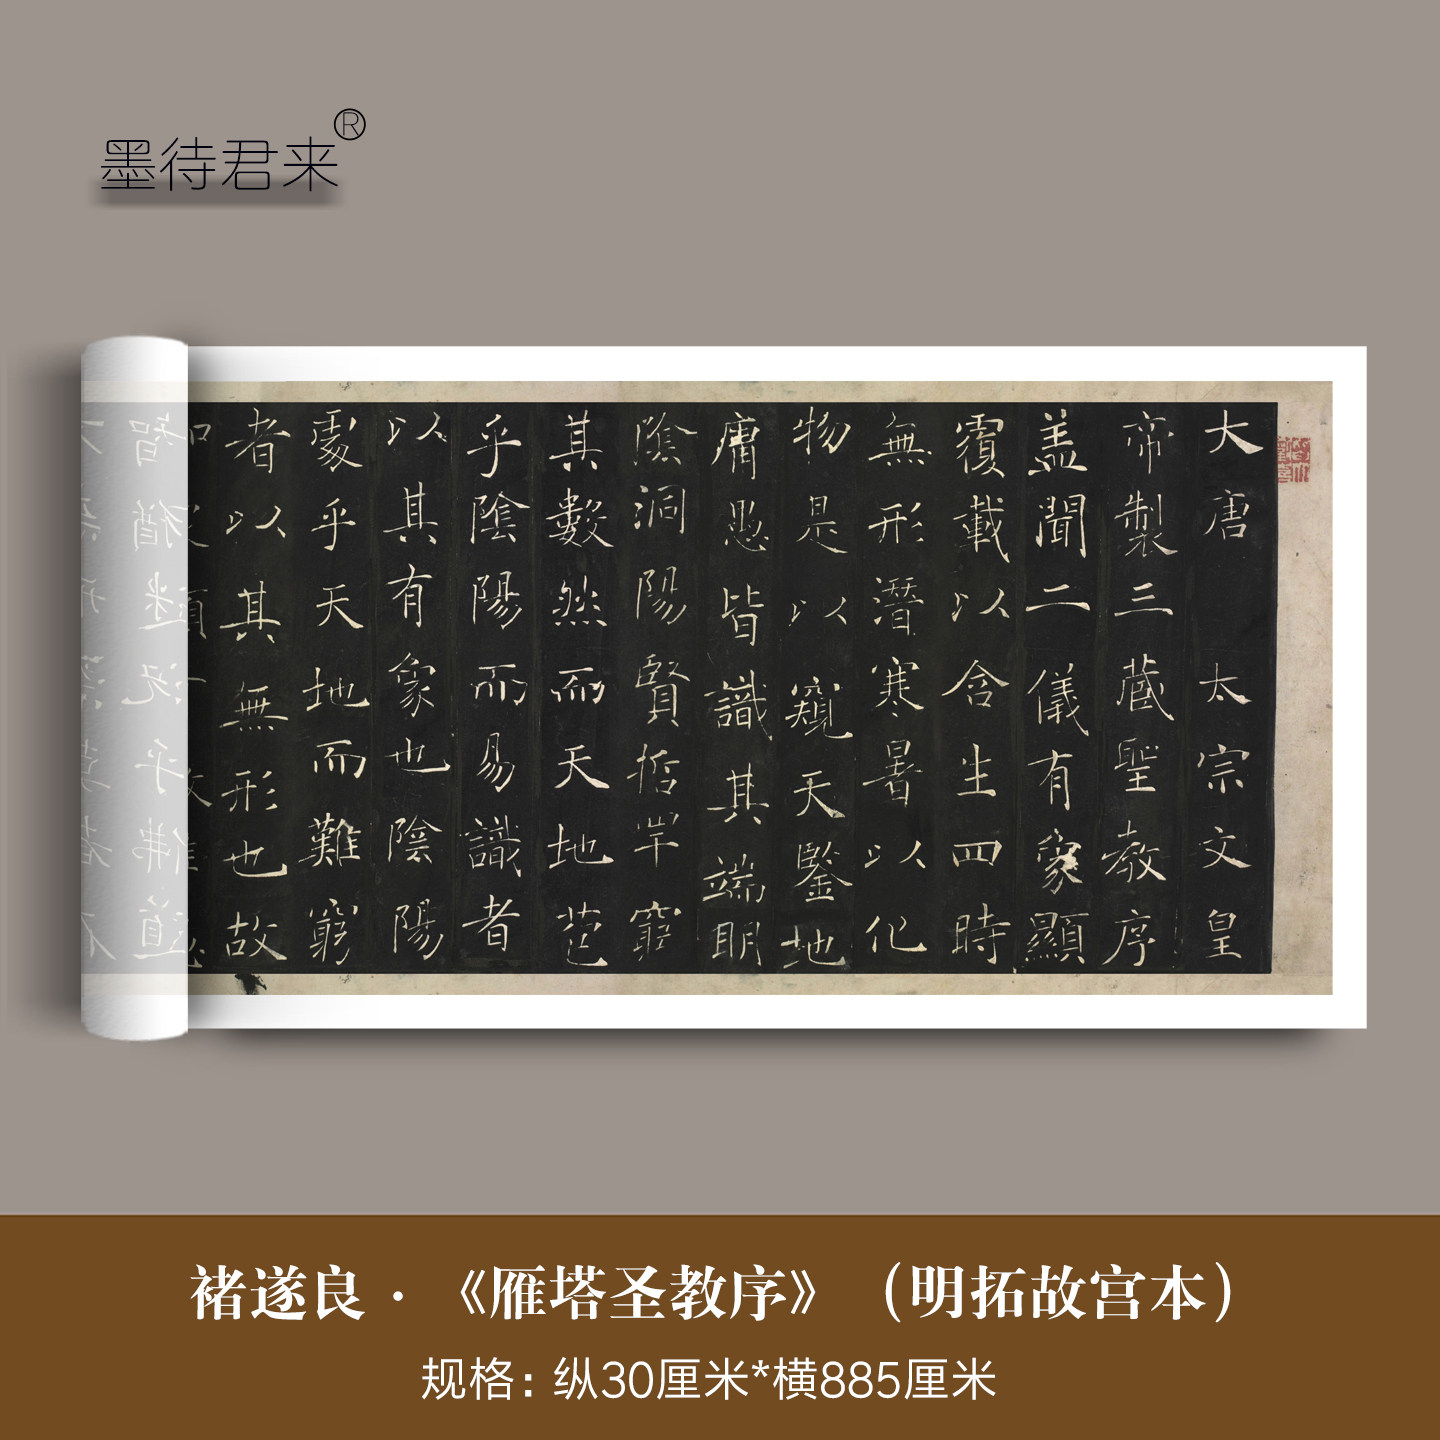 墨待君来®
大唐太宗文皇
帝製三藏聖教序
盖聞二儀有象顯
覆載以含生四時
無形潛寒暑以化
物是以窺天鑒地
庸愚皆識其端明
陰洞陽賢哲罕窮
其數然而天地苞
乎陰陽而易識者
以其有象也陰陽
處乎天地而難窮
者以其無形也故
智猶迷況乎佛道
褚遂良·《雁塔圣教序》（明拓故宫本）
规格：纵30厘米*横885厘米